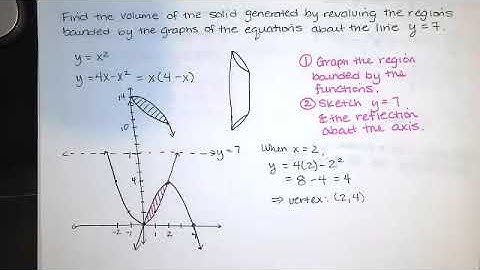 Find the volume of the solid generated by revolving the regions
bounded by the graphs of the equations about the line y = 7.
y = x²
y = 4x - x² = x(4 - x)
① Graph the region
bounded by the
functions.
② Sketch y = 7
& the reflection
about the axis.
14
10
7
y = 7
4
-2 -1 1 2 4
When x = 2,
y = 4(2) - 2²
= 8 - 4 = 4
⇒ vertex: (2, 4)